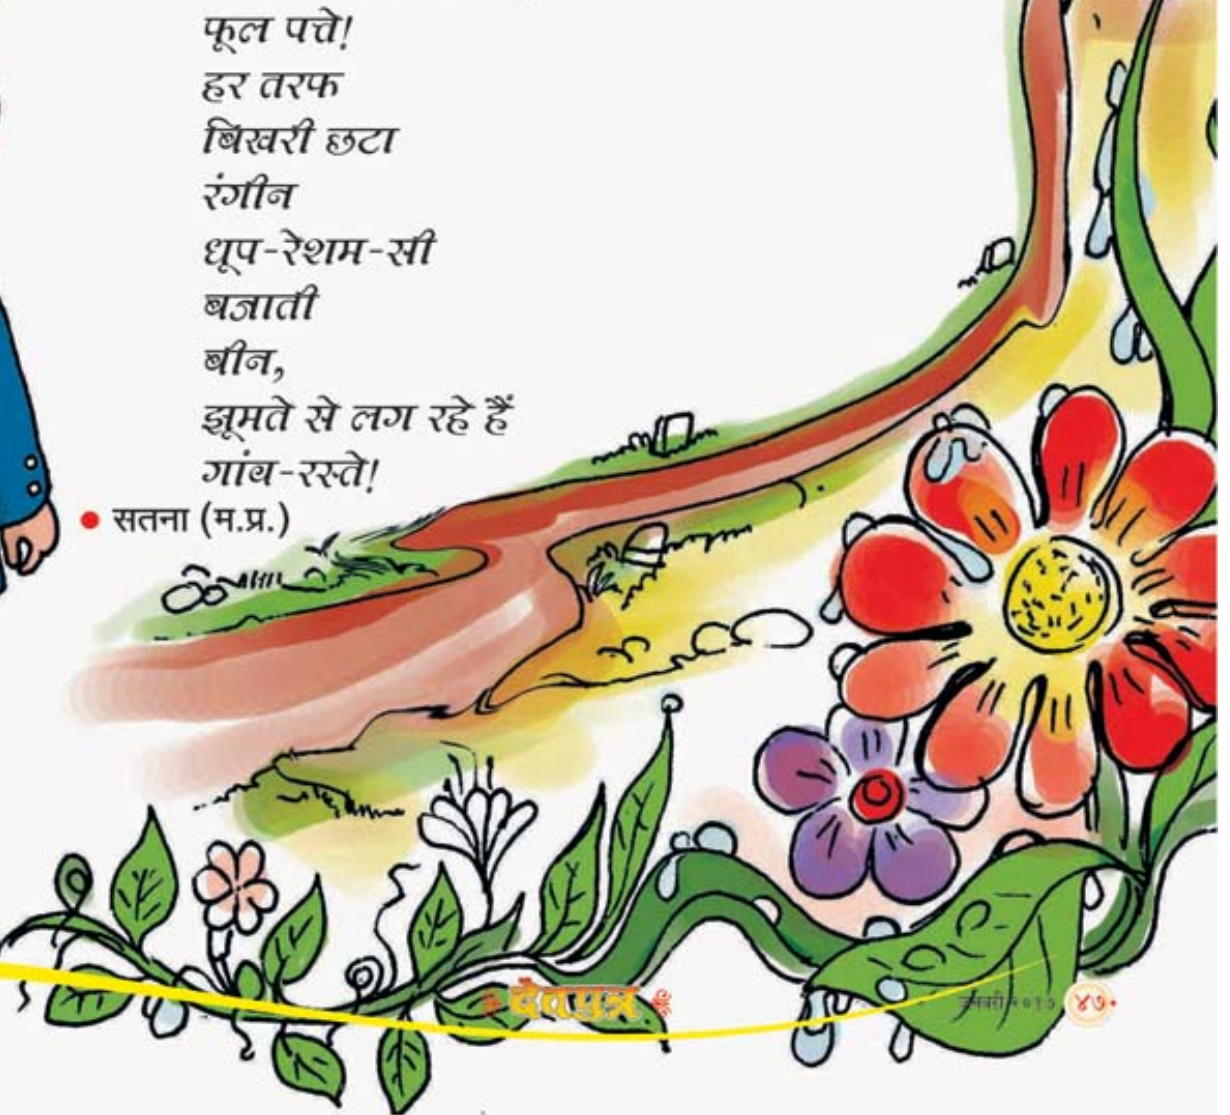 फूल पत्ते!
हर तरफ
बिखरी छटा
रंगीन
धूप-रेशम-सी
बजाती
बीन,
झूमते से लग रहे हैं
गांव-रस्ते!
• सतना (म.प्र.)
देवपुत्र
जनवरी २०१७ ४७